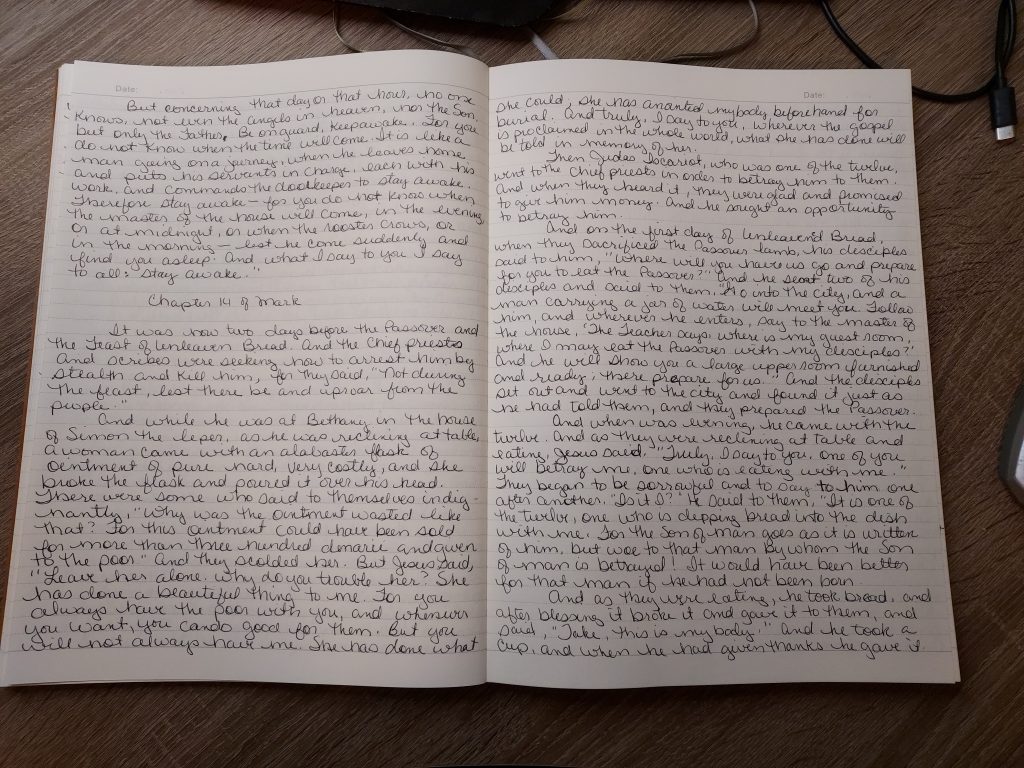 Date:
But concerning that day or that hour, no one
Knows, not even the angels in heaven, nor the Son,
but only the Father. Be on guard, keep awake. For you
do not know when the time will come. It is like a
man going on a journey, when he leaves home
and puts his servants in charge, each with his
work, and commands the doorkeeper to stay awake.
Therefore stay awake - for you do not know when
the master of the house will come, in the evening,
or at midnight, or when the rooster crows, or
in the morning - lest he come suddenly and
find you asleep. And what I say to you I say
to all: stay awake."
Chapter 14 of Mark
It was now two days before the Passover and
the Feast of Unleaven Bread. And the Chief priests
And scribes were seeking how to arrest him by
stealth and kill him, for they said, "Not during
the feast, lest there be and uproar from the
people."
And while he was at Bethany in the house
of Simon the leper, as he was reclining at table,
a woman came with an alabaster flask of
ointment of pure nard, very costly, and she
broke the flask and poured it over his head.
There were some who said to themselves indig-
nantly, "Why was the ointment wasted like
that? For this ointment could have been sold
for more than three hundred denarii and given
to the poor." And they scolded her. But Jesus said,
"Leave her alone. Why do you trouble her? She
has done a beautiful thing to me. For you
always have the poor with you, and whenever
you want, you can do good for them. But you
will not always have me. She has done what
Date:
she could, she has ananted my body beforehand for
burial. And truly, I say to you, wherever the gospel
is proclaimed in the whole world, what she has done will
be told in memory of her.
Then Judas Iscariot, who was one of the twelve,
went to the Chief priests in order to betray him to them.
And when they heard it, they were glad and promised
to give him money. And he sought an opportunity
to betray him.
And on the first day of Unleaven'd Bread,
when they sacrificed the Passover lamb, his disciples
said to him, "Where will you have us go and prepare
for you to eat the Passover?" And he sent two of his
disciples and said to them. "Go into the city, and a
man carrying a jar of water will meet you. Follow
him, and wherever he enters, say to the master of
the house, 'The Teacher says, where is my guest room,
where I may eat the Passover with my disciples?'
And he will show you a large upper room furnished
and ready; there prepare for us." And the disciples
set out and went to the city and found it just as
he had told them, and they prepared the Passover.
And when was evening, he came with the
twelve. And as they were reclining at table and
eating, Jesus said, "Truly, I say to you, one of you
will betray me, one who is eating with me."
They began to be sorrowful and to say to him one
after another. "Is it I?" He said to them, "It is one of
the twelve, one who is depping bread into the dish
with me. For the Son of man goes as it is written
of him, but woe to that man by whom the Son
of man is betrayed! It would have been better
for that man if he had not been born.
And as they were eating, he took bread, and
after blessing it broke it and gave it to them, and
said, "Take, this is my body." And he took a
cup, and when he had given thanks he gave it